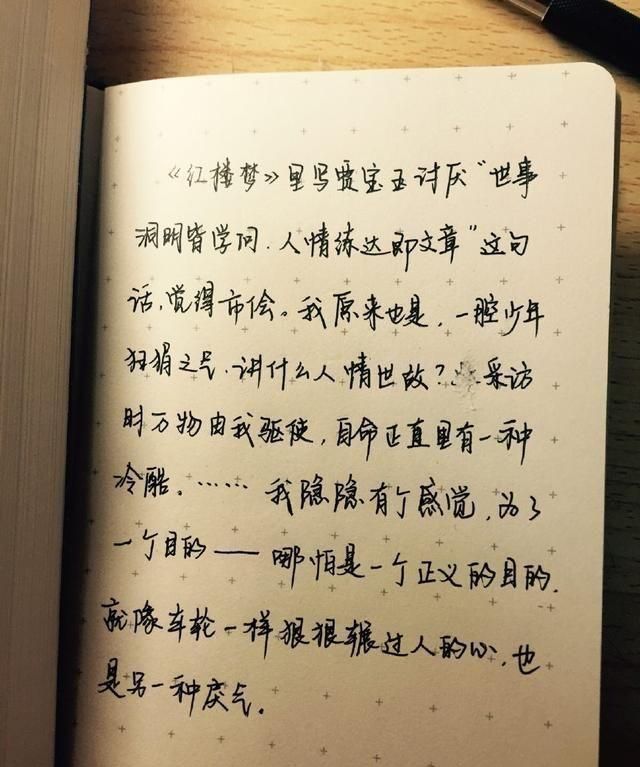 《红楼梦》里写贾宝玉讨厌“世事
洞明皆学问.人情练达即文章”这句
话,觉得市侩。我原来也是,一腔少年
狂狷之气,讲什么人情世故?采访
时万物由我驱使,自命正直里有一种
冷酷。……我隐隐有个感觉,为了
一个目的——哪怕是一个正义的目的,
就像车轮一样狠狠辗过人的心,也
是另一种戾气。